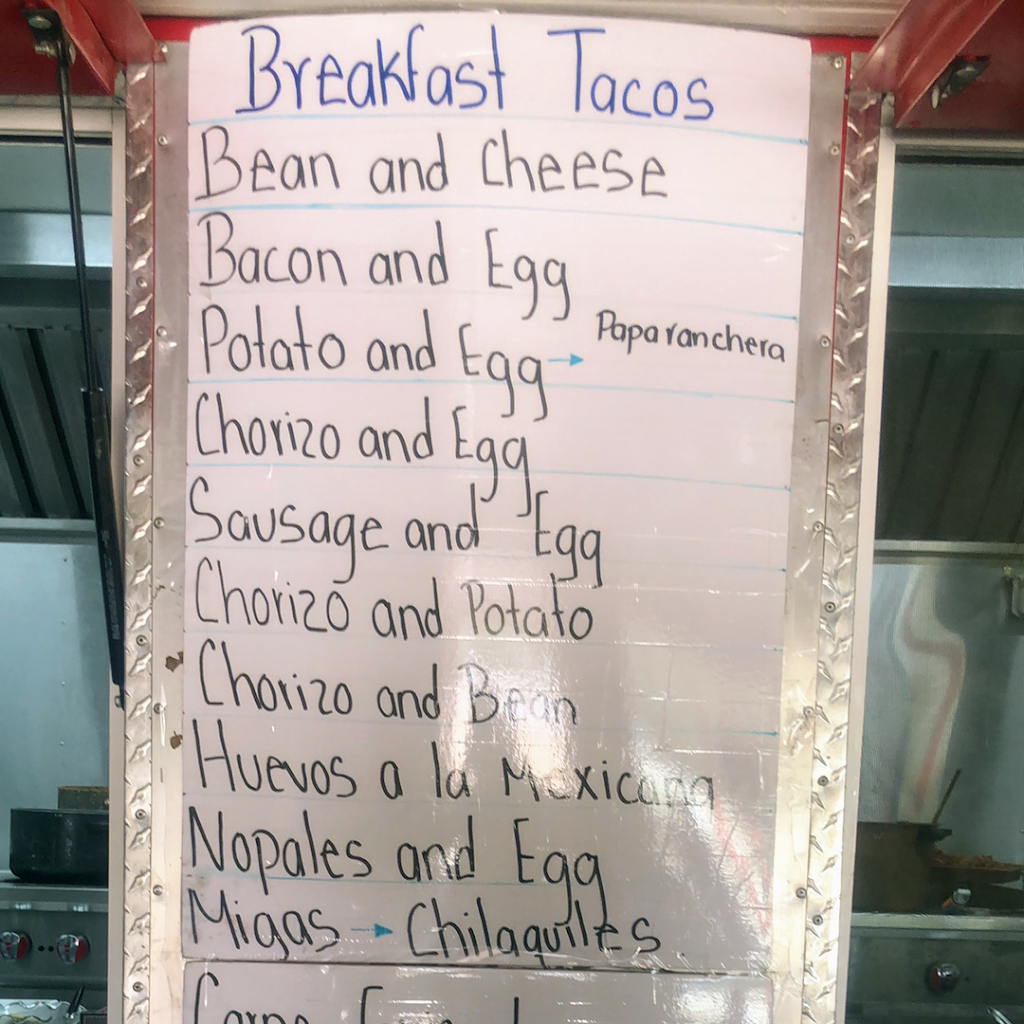 Breakfast Tacos
Bean and Cheese
Bacon and Egg
Potato and Egg → Papa ranchera
Chorizo and Egg
Sausage and Egg
Chorizo and Potato
Chorizo and Bean
Huevos a la Mexicana
Nopales and Egg
Migas → Chilaquiles